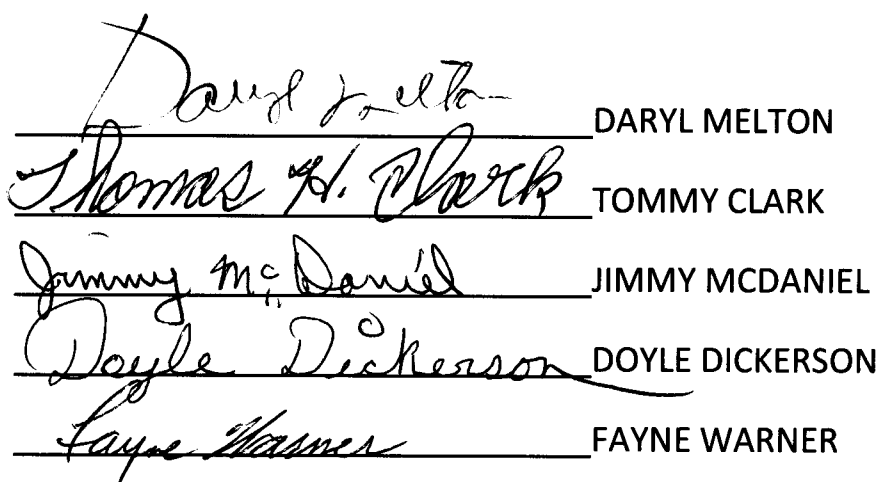 Daryl Melton DARYL MELTON
Thomas H. Clark TOMMY CLARK
Jimmy McDaniel JIMMY MCDANIEL
Doyle Dickerson DOYLE DICKERSON
Fayne Warner FAYNE WARNER